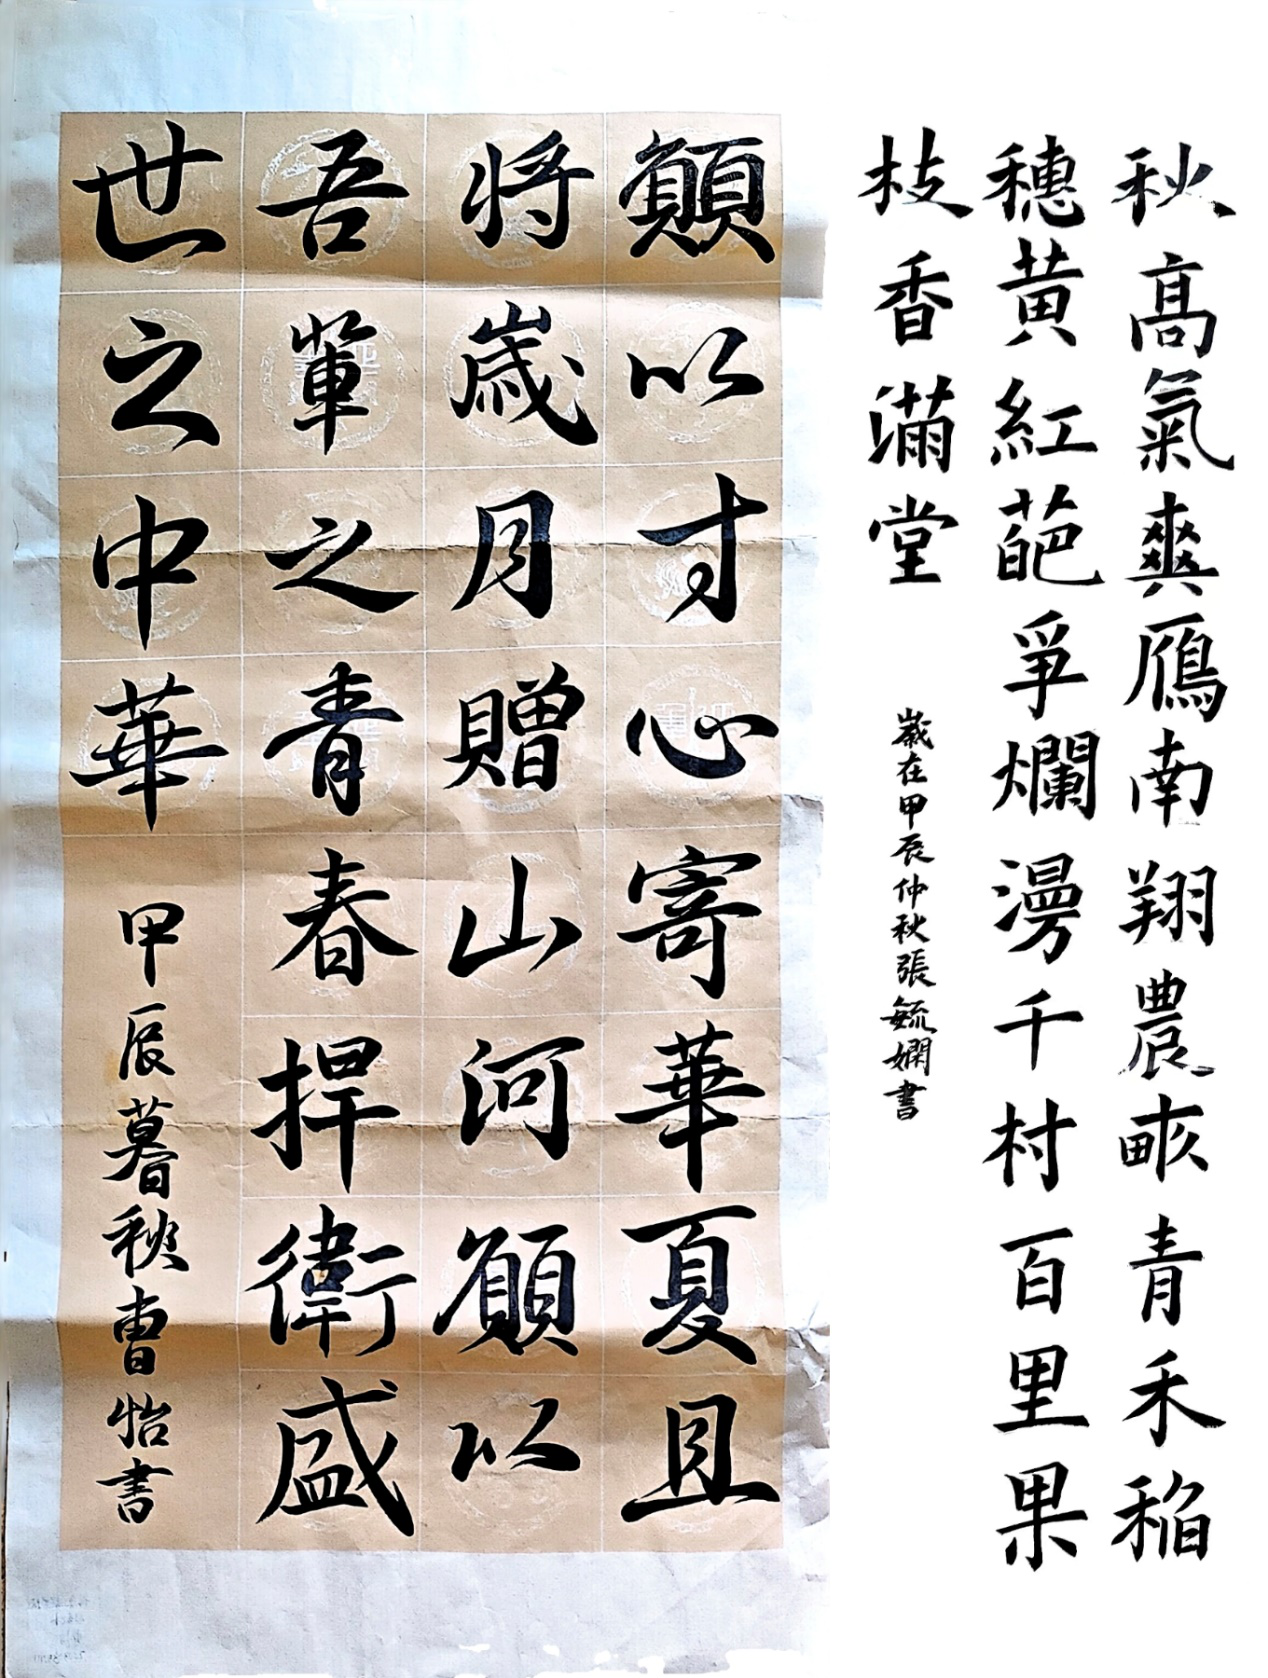 秋髙氣爽鴈南翔農畝青禾稻
穗黄紅葩爭爛漫千村百里果
枝香滿堂
歲在甲辰仲秋張毓嫻書
願以寸心寄華夏且
將歲月贈山河願以
吾輩之青春捍衛盛
世之中華 甲辰暮秋曹怡書